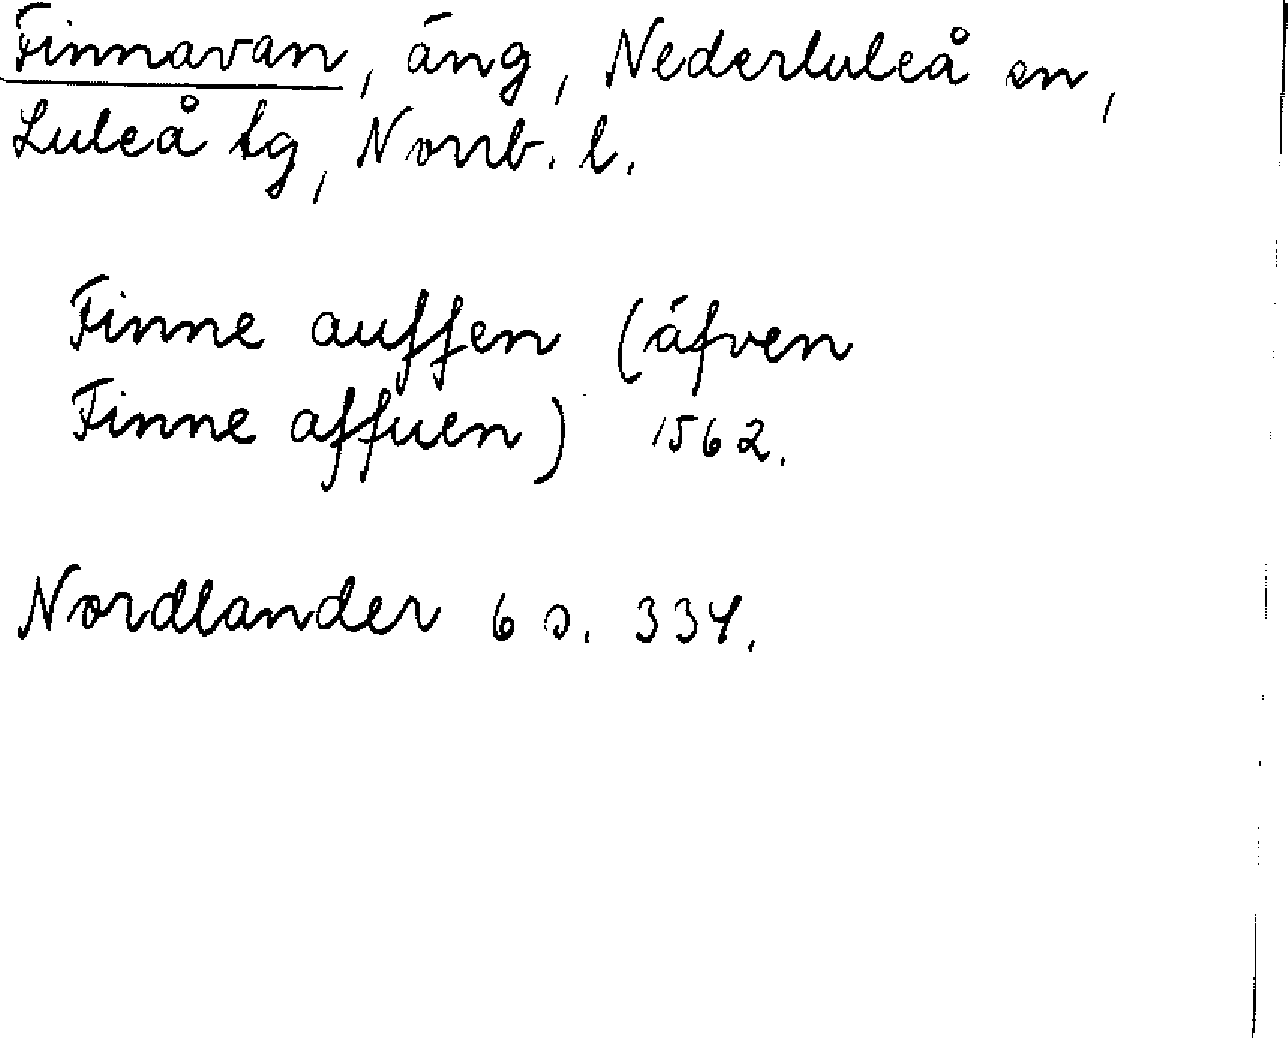 Finnavan, äng, Nederluleå sn,
Luleå tg, Norrb. l.
Finne auffen (äfven
Finne affuen) 1562.
Nordlander 6 s. 334.